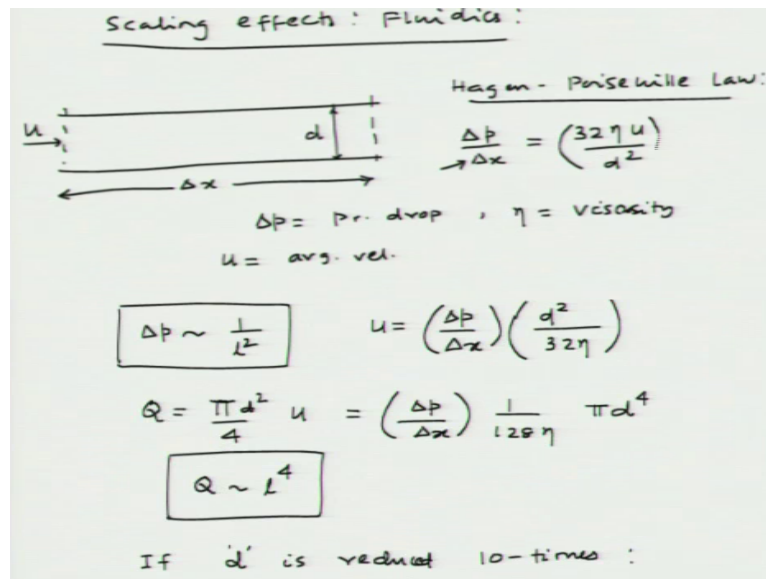 Scaling effects: Fluidics:
Hagen - Poisehille Law:
u
d
Δp/Δx = (32ηu/d²)
Δx
Δp = Pr. drop , η = viscosity
u = avg. vel.
Δp ~ 1/l²
u = (Δp/Δx)(d²/32η)
Q = πd²/4 u = (Δp/Δx) 1/128η πd⁴
Q ~ l⁴
If 'd' is reduced 10-times :